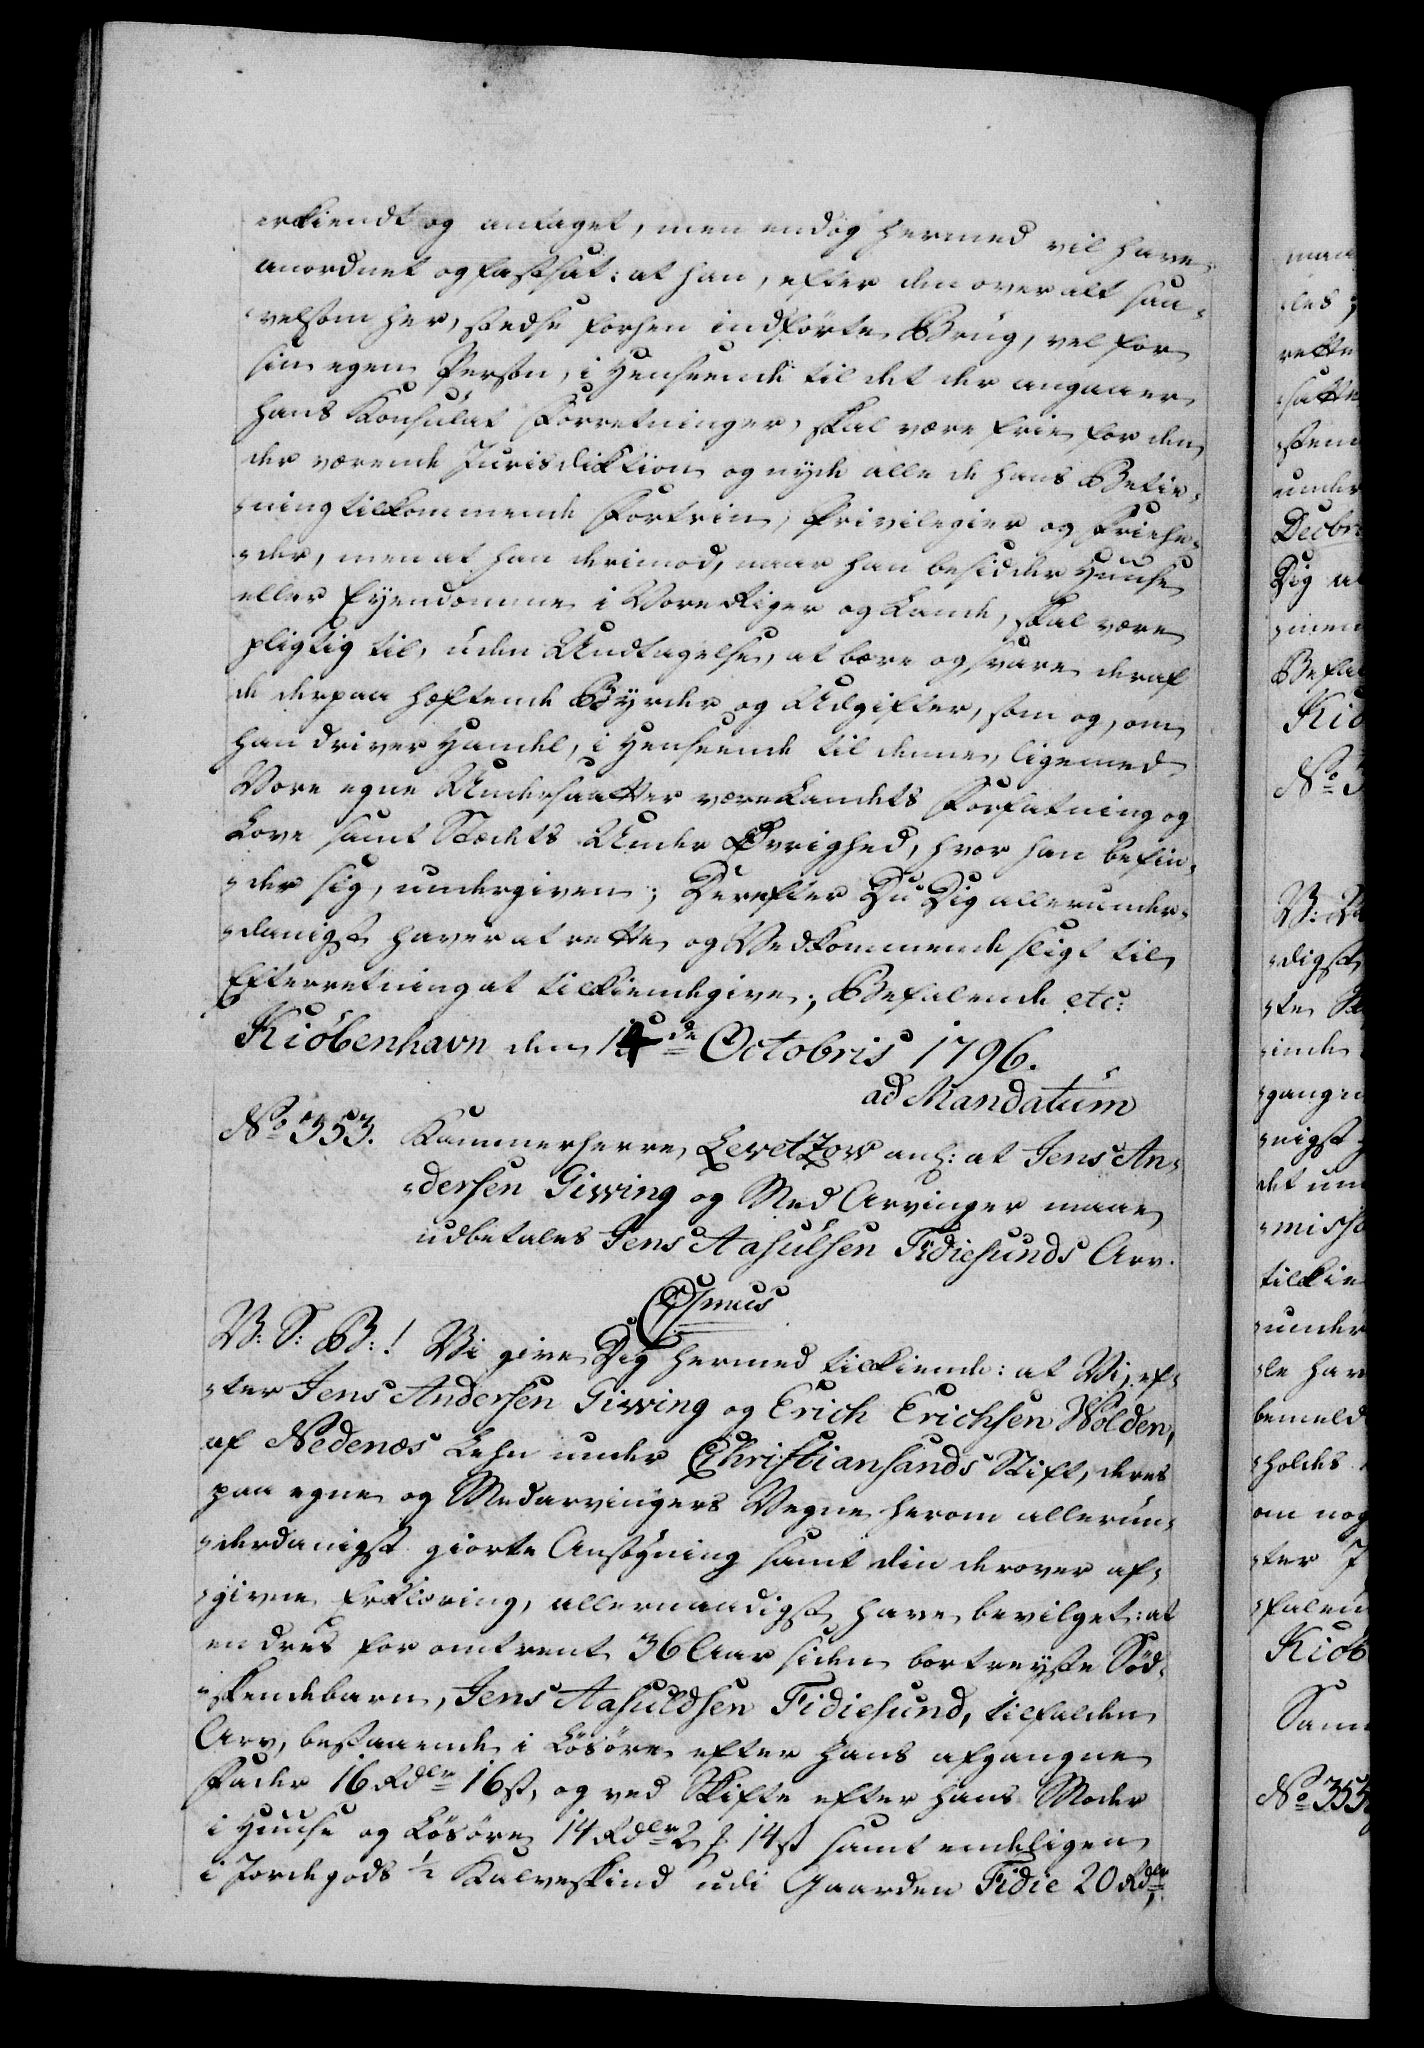 erkiendt og antaget, men endog hermed vil have
anordnet og fastsat: at han, efter den overalt saa-
velsom her, stedse forhen indførte Brug, vel for
sin egen Person, i Henseende til det der angaaer
hans Konsulat Forretninger, skal være frie for den
der værende Jurisdiktion og nyde alle de hans Betie-
ning tilkommende Fortrin, Privilegier og Friehe-
der, men at han derimod, naar han besidder Huuse
eller Eyendomme i Vore Riger og Lande, skal være
pligtig til, uden Undtagelse, at bære og svare deraf
de derpaa hæftende Byrder og Udgifter, som og, om
han driver Handel, i Henseende til denne, ligemed
Vore egne Undersaatter være Landets Forfatning og
Love samt Stædets Under Øvrighed, hvor han befin-
der sig, undergiven; Derefter Du Dig allerunder-
danigst haver at rette, og Vedkommende sligt til
Efterretning at tilkiendegive; Befalende etc:
Kiöbenhavn den 14de Octobris 1796.
ad Mandatum
No 353. Kammerherre Levetzow anh: at Jens An-
dersen Givving og Med Arvinger maae
udbetales Jens Aasulsen Fidiesunds Arv.
Csmus
V: S: B:! Vi give Dig hermed tilkiende: at Vi, ef-
ter Jens Andersen Givving og Erich Erichsen Wolden,
af Nedenæs Lehn under Christiansands Stift, deres
paa egne og Medarvingers Vegne herom allerun-
derdanigst giorte Ansøgning samt din derover af-
givne Erklæring, allernaadigst have bevilget: at
en deres for omtrent 36 Aar siden bortreyste Sød-
skendebarn, Jens Aasuldsen Fidiesund, tilfalden
Arv, bestaaende i Løsøre efter hans afgangne
Fader 16 Rdlr 16 s, og ved Skifte efter hans Moder
i Huuse og Løsøre 14 Rdlr 2 ƒ 14 s samt endeligen
i Jordegods 1/2 Kalveskind udi Gaarden Fidie 20 Rdlr,